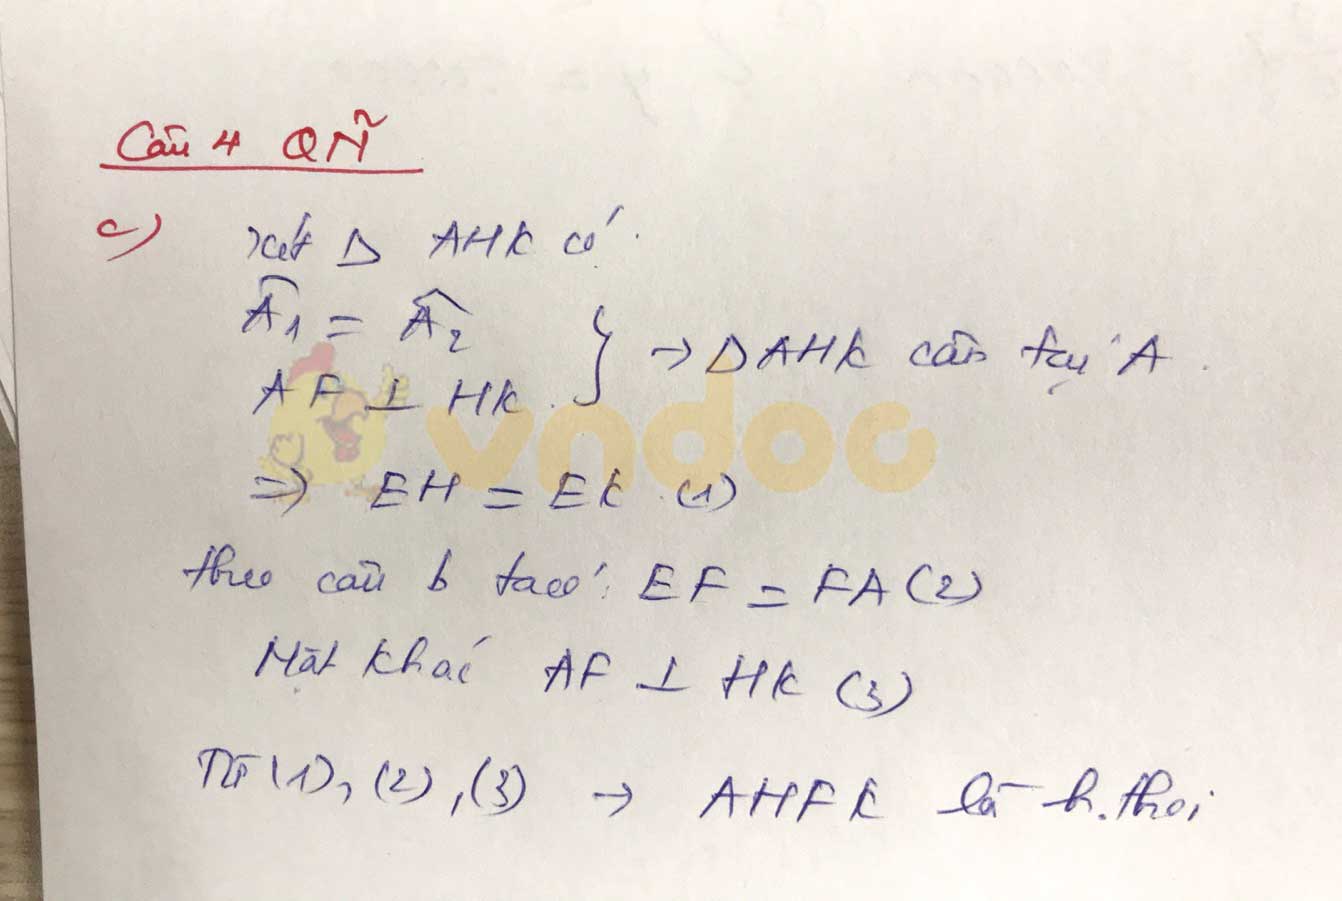 Câu 4 QN
c) Xét Δ AHK có:
Â1 = Â2
AF ⊥ HK } → Δ AHK cân tại A.
vndoc
=> EH = EK (1)
theo câu b ta có: EF = FA (2)
Mặt khác AF ⊥ HK (3)
Từ (1), (2), (3) → AHFK là h.thoi